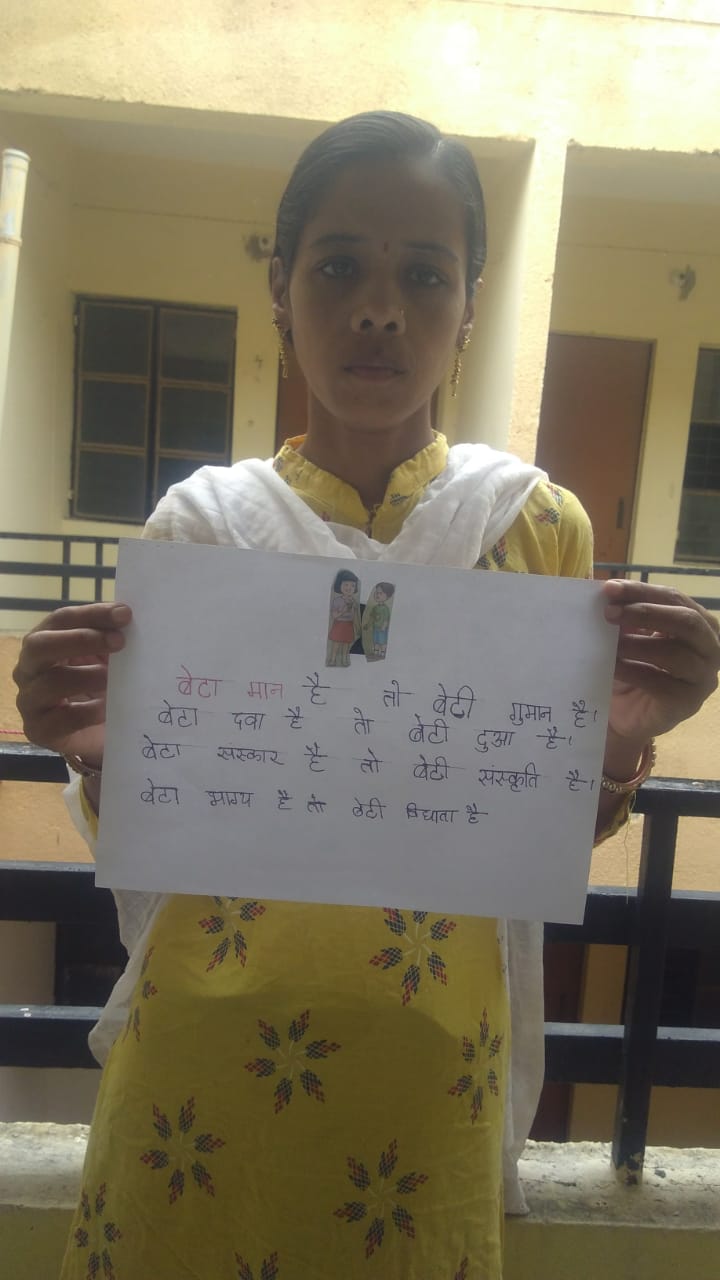 बेटा मान है तो बेटी गुमान है।
बेटा दवा है तो बेटी दुआ है।
बेटा संस्कार है तो बेटी संस्कृति है।
बेटा भाग्य है तो बेटी विधाता है